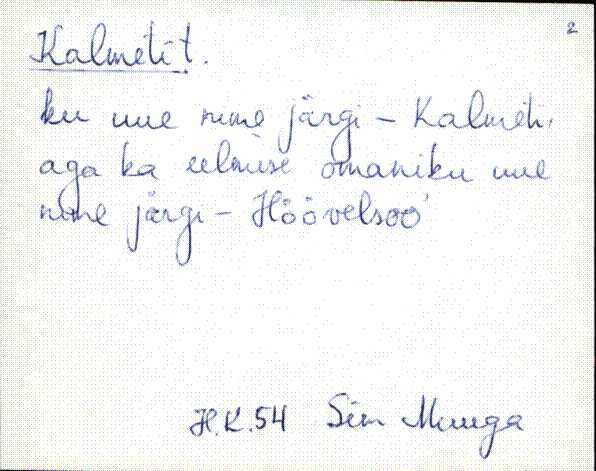 2
Kalmetit.
ku uue nime järgi - Kalmeti,
aga ka eelmise omaniku uue
nime järgi - Höövelsoo'
H.K.54 Siin Muuga